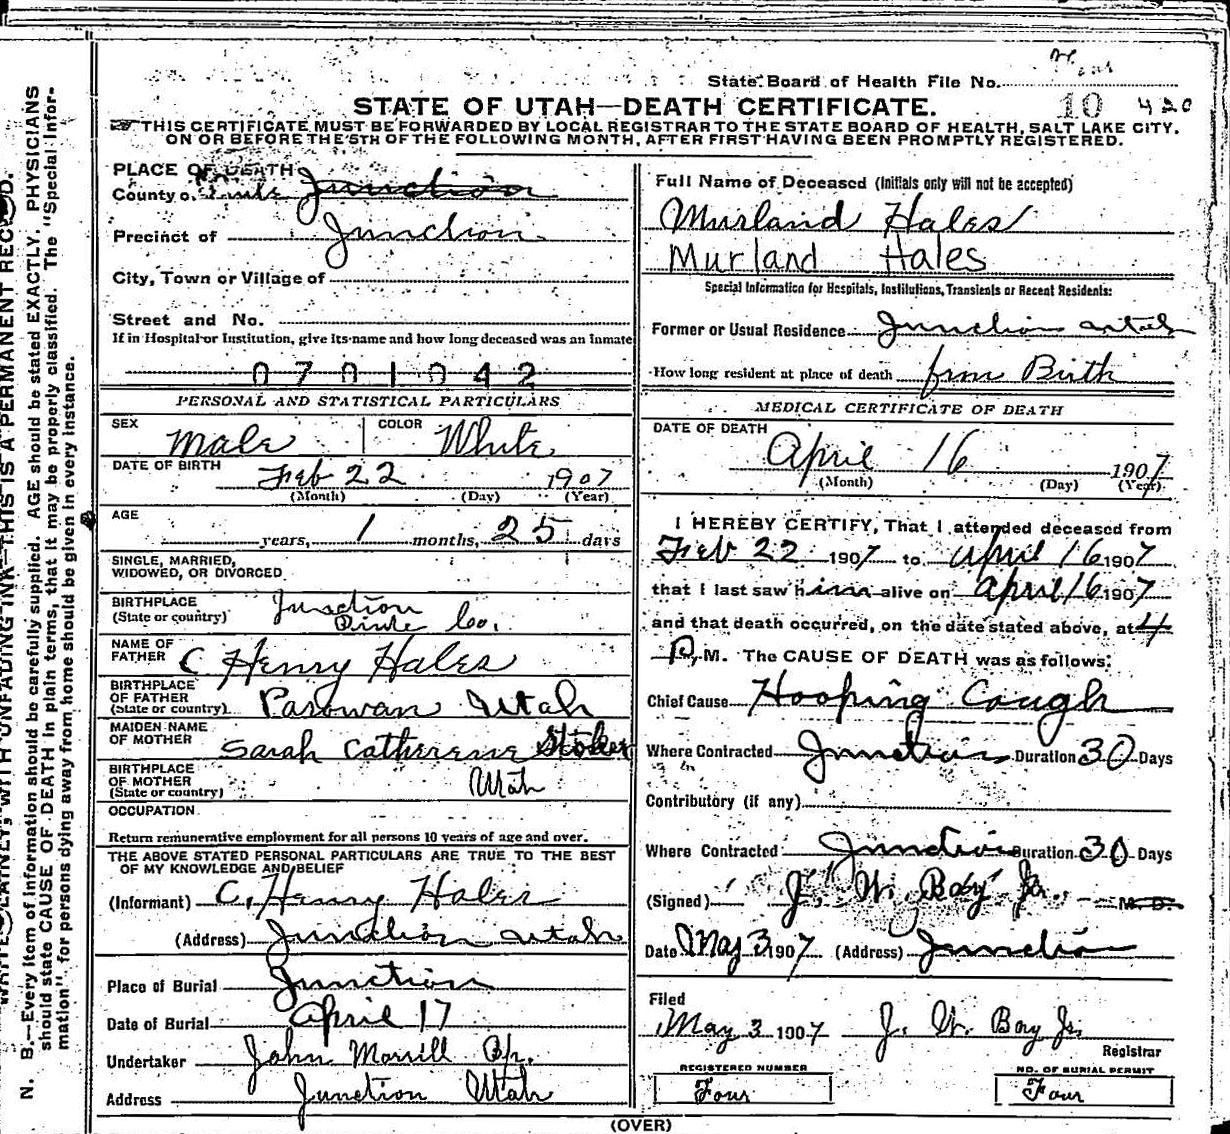 State Board of Health File No.
STATE OF UTAH—DEATH CERTIFICATE.
10 420
THIS CERTIFICATE MUST BE FORWARDED BY LOCAL REGISTRAR TO THE STATE BOARD OF HEALTH, SALT LAKE CITY.
ON OR BEFORE THE 5TH OF THE FOLLOWING MONTH, AFTER FIRST HAVING BEEN PROMPTLY REGISTERED.
PLACE OF DEATH
County o. Junction
Precinct of Junction
City, Town or Village of
Street and No.
If in Hospital or Institution, give its name and how long deceased was an inmate
0701042
PERSONAL AND STATISTICAL PARTICULARS
SEX Male COLOR White
DATE OF BIRTH Feb 22 1907
(Month) (Day) (Year)
AGE years, 1 months, 25 days
SINGLE, MARRIED,
WIDOWED, OR DIVORCED
BIRTHPLACE Junction
(State or country) Piute Co.
NAME OF
FATHER C Henry Hales
BIRTHPLACE
OF FATHER
(State or country) Parowan Utah
MAIDEN NAME
OF MOTHER Sarah Catherene Stoker
BIRTHPLACE
OF MOTHER
(State or country) Utah
OCCUPATION
Return remunerative employment for all persons 10 years of age and over.
THE ABOVE STATED PERSONAL PARTICULARS ARE TRUE TO THE BEST
OF MY KNOWLEDGE AND BELIEF
(Informant) C. Henry Hales
(Address) Junction Utah
Place of Burial Junction
Date of Burial April 17
Undertaker John Morrill Bp.
Address Junction Utah
Full Name of Deceased (Initials only will not be accepted)
Murland Hales
Murland Hales
Special Information for Hospitals, Institutions, Transients or Recent Residents:
Former or Usual Residence Junction Utah
How long resident at place of death from Birth
MEDICAL CERTIFICATE OF DEATH
DATE OF DEATH
April 16 1907
(Month) (Day) (Year)
I HEREBY CERTIFY, That I attended deceased from
Feb 22 1907 to April 16 1907
that I last saw him alive on April 16 1907
and that death occurred, on the date stated above, at 4
P.M. The CAUSE OF DEATH was as follows:
Chief Cause Hooping Cough
Where Contracted Junction Duration 30 Days
Contributory (if any)
Where Contracted Junction Duration 30 Days
(Signed) J. W. Boy Jr. M. D.
Date May 3 1907 (Address) Junction
Filed
May 3 1907 J. W. Boy Jr.
Registrar
REGISTERED NUMBER
Four
NO. OF BURIAL PERMIT
Four
(OVER)
N. B.—Every item of information should be carefully supplied. AGE should be stated EXACTLY. PHYSICIANS
should state CAUSE OF DEATH in plain terms, that it may be properly classified. The "Special Infor-
mation" for persons dying away from home should be given in every instance.
WITH UNFADING INK—THIS IS A PERMANENT